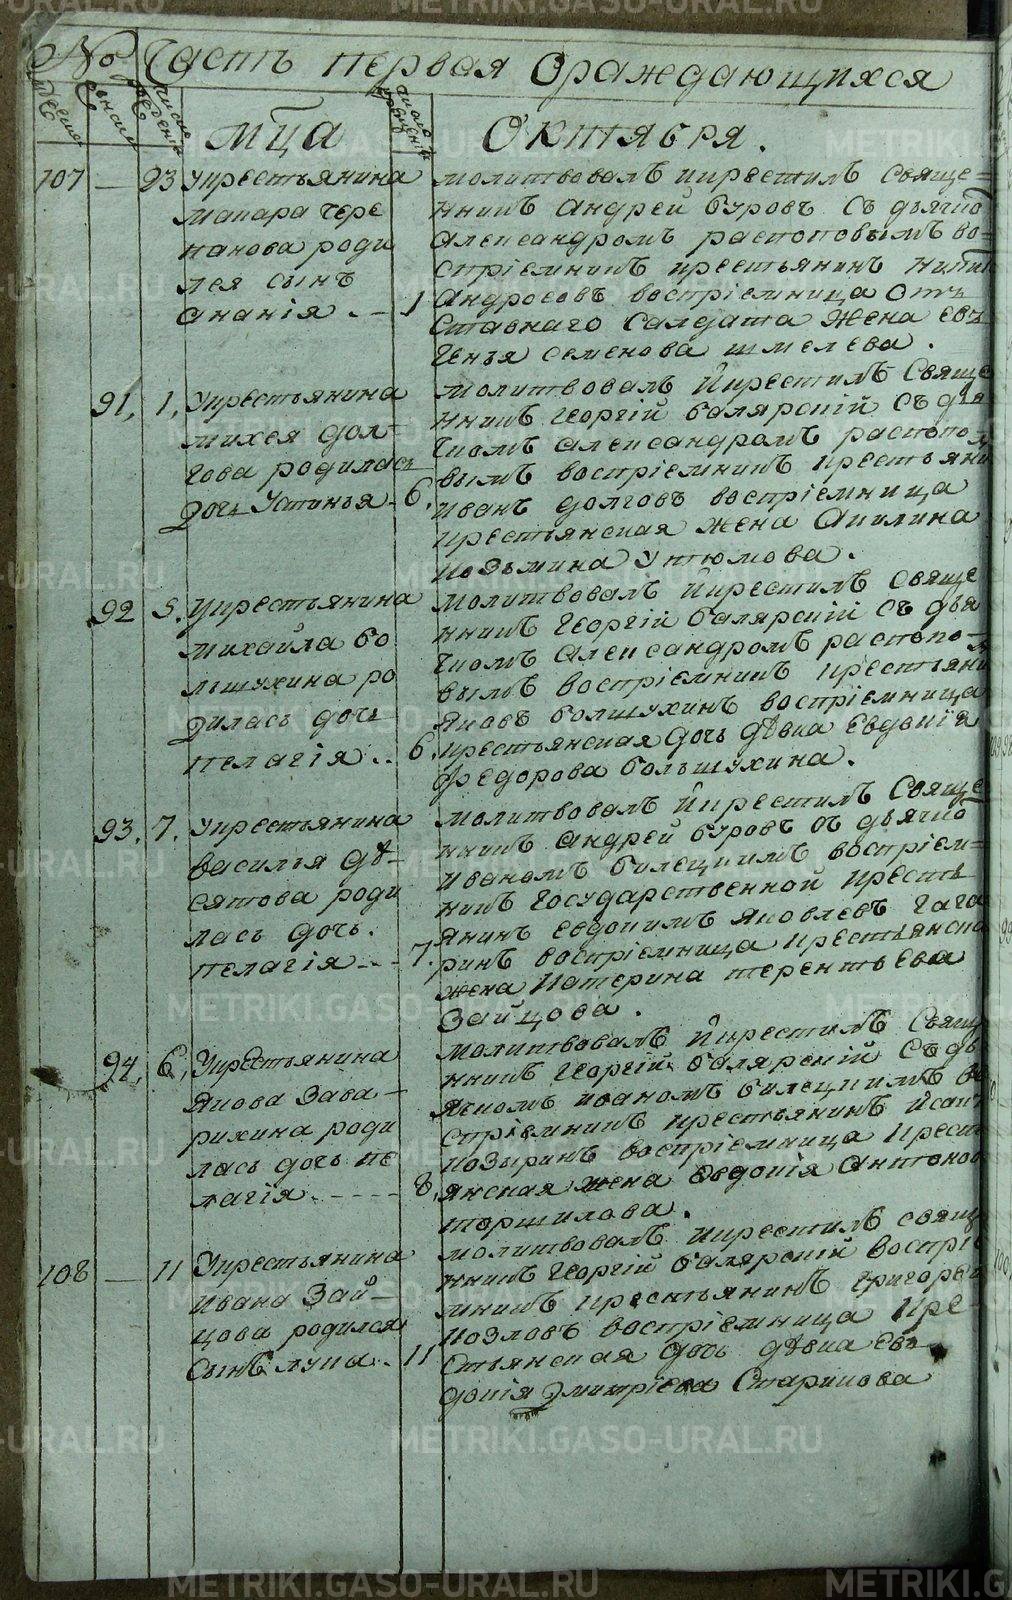 № Часть первая Ораждающихся
мца Октября.
107 — 23 Укрестьянина
макара чере
панова роди
лся сынъ
анания . — 1
молитвовалъ икрестилъ свяще=
нникъ андрей буровъ съ дьячко
александромъ распоповымъ во=
спріемникъ крестьянинъ никит
андросовъ воспріемница отъ
ставнаго салдата жена Евъ
генья семенова шмелева .
91, 1, Укрестьянина
михея дол—
гова родилась
дочь Устинья - 6.
молитвовалъ Икрестилъ Свяще
нникъ георгій балярский съ дья
чкомъ александромъ распопо
вымъ воспріемникъ крестьяни
иванъ долговъ воспріемница
крестьянская жена Акилина
козьмина утюмова .
92 5. Укрестьянина
михаила бо
льшухина ро
дилась дочь
пелагія .. 6.
молитвовалъ Икрестилъ свяще
нникъ георгій балярскій съ дья
чкомъ александромъ распопо—
вымъ воспріемникъ крестьяни
яковъ болшухинъ воспріемница
крестьянская дочь дѣвка Евдокія
федорова большухина .
93. 7. Укрестьянина
василья дѣ—
сятова роди
лась дочь.
пелагія --- 7.
молитвовалъ Икрестилъ Свяще
нникъ андрей буровъ съ дьячко
иваномъ билецкимъ воспріем=
никъ государственной кресть
янинъ евдокимъ яковлевъ гага
ринъ воспріемница крестьянска
жена Катерина терентьева
Зайцова .
94, 6, Укрестьянина
Якова Зава—
рихина роди
лась дочь пе
лагія - - - - - 8,
молитвовалъ Икрестилъ Свящ
нникъ георгій балярскій Съ дь
ячкомъ иваномъ билецкимъ во
спріемникъ крестьянинъ Исак
козыринъ воспріемница крест
янская жена Евдокія антонов
торшилова .
108 — 11 Укрестьянина
ивана Зай—
цова родился
сынъ лука .. 11
молитвовалъ икрестилъ свящ
нникъ георгій балярскій воспріе
мникъ крестьянинъ григорей
козловъ воспріемница кре
стьянская дочь дѣвка Ев
докія дмитріева Старикова